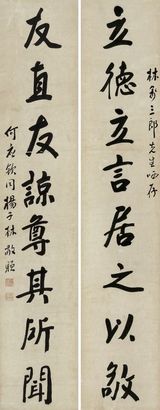 林玉三郎先生哂存
立德立言居之以敬
友直友諒尊其所聞
何應欽同楊子林敬題